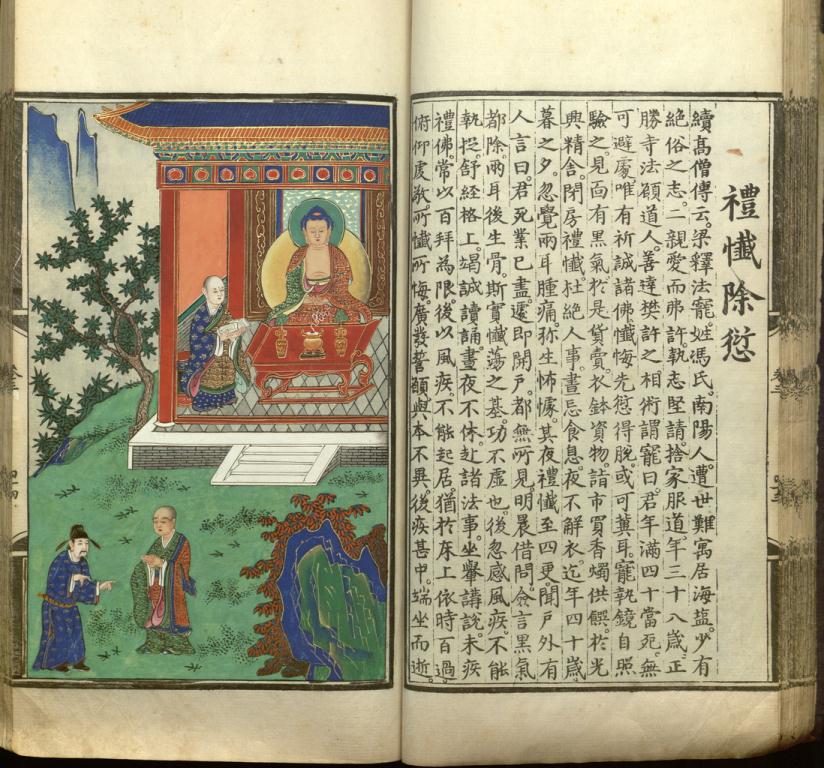 禮懺除愆
續高僧傳云。梁釋法寵。姓馮氏。南陽人。遭世難寓居海塩。少有
絕俗之志。二親愛而弗許。執志堅請。捨家服道。年三十八歲。正
勝寺法願道人。善達樊許之相術。謂寵曰。君年滿四十當死。無
可避處。唯有祈誠諸佛。懺悔先愆。得脫。或可冀耳。寵執鏡自照
驗之。見面有黑氣。於是貨賣衣鉢資物。詣市買香燭供饌。於光
興精舍。閉房禮懺。杜絕人事。晝忘食息。夜不解衣。迄年四十歲
暮之夕。忽覺兩耳腫痛。弥生怖懅。其夜禮懺至四更。聞戶外有
人言曰。君死業已盡。遽即開戶。都無所見。明晨借問。僉言黑氣
都除。兩耳後生骨。斯實懺蕩之基。功不虛也。後忽感風疾。不能
執捉。舒經格上。竭誠讀誦。晝夜不休。赴諸法事。坐轝講說。未疾
禮佛。常以百拜為限。後以風疾。不能起居。猶於床上依時百過
俯仰虔敬。所懺所悔。廣發誓願。與本不異。後疾甚中。端坐而逝。